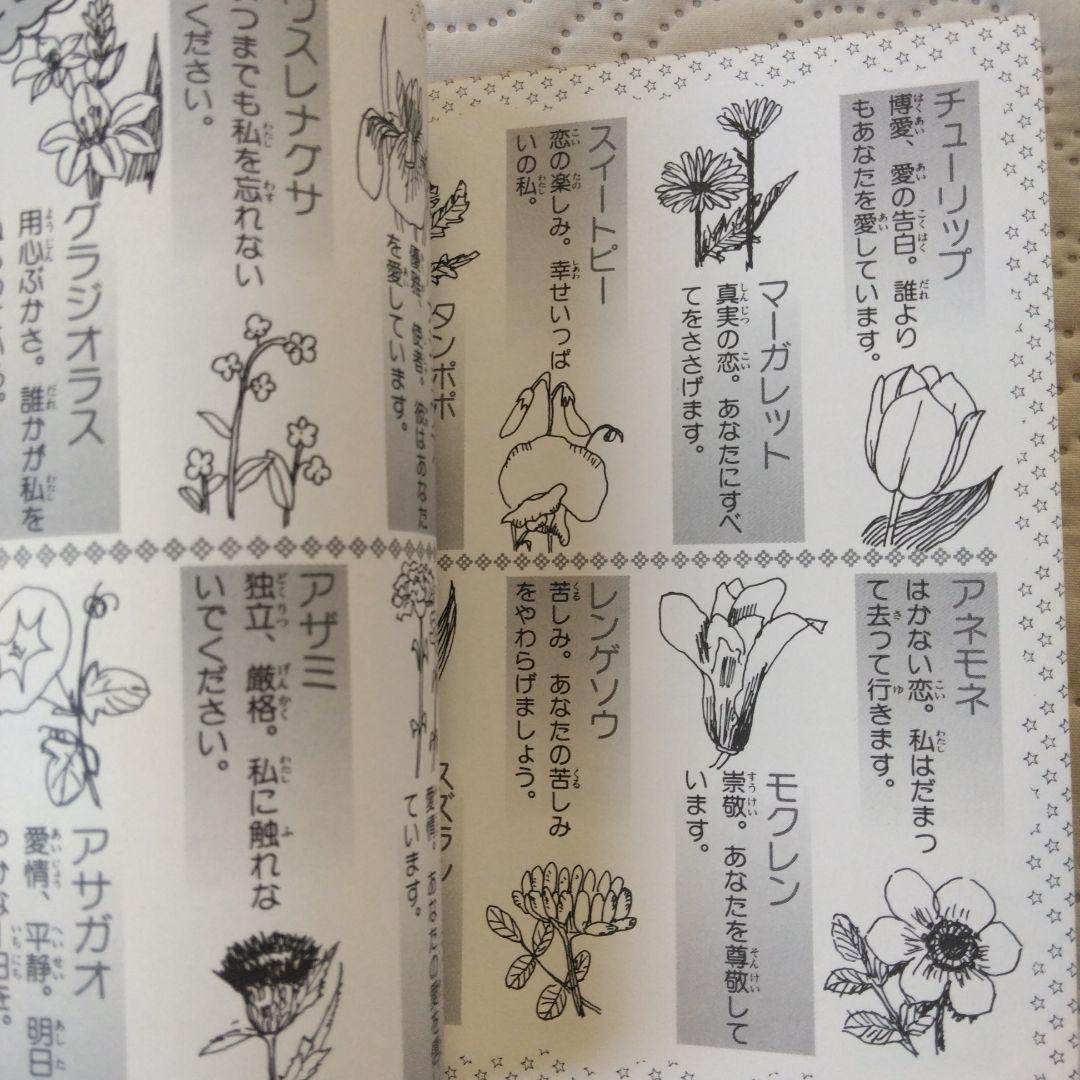 チューリップ
博愛、愛の告白。誰より
もあなたを愛しています。
マーガレット
真実の恋。あなたにすべ
てをささげます。
スイートピー
恋の楽しみ。幸せいっぱ
いの私。
タンポポ
使者。彼はあなた
を愛しています。
ワスレナグサ
つまでも私を忘れない
ください。
グラジオラス
用心ぶかさ。誰かが私を
アネモネ
はかない恋。私はだまっ
て去って行きます。
モクレン
崇敬。あなたを尊敬して
います。
レンゲソウ
苦しみ。あなたの苦しみ
をやわらげましょう。
スズラン
愛情。あなたの愛を
ています。
アザミ
独立、厳格。私に触れな
いでください。
アサガオ
愛情、平静。明日